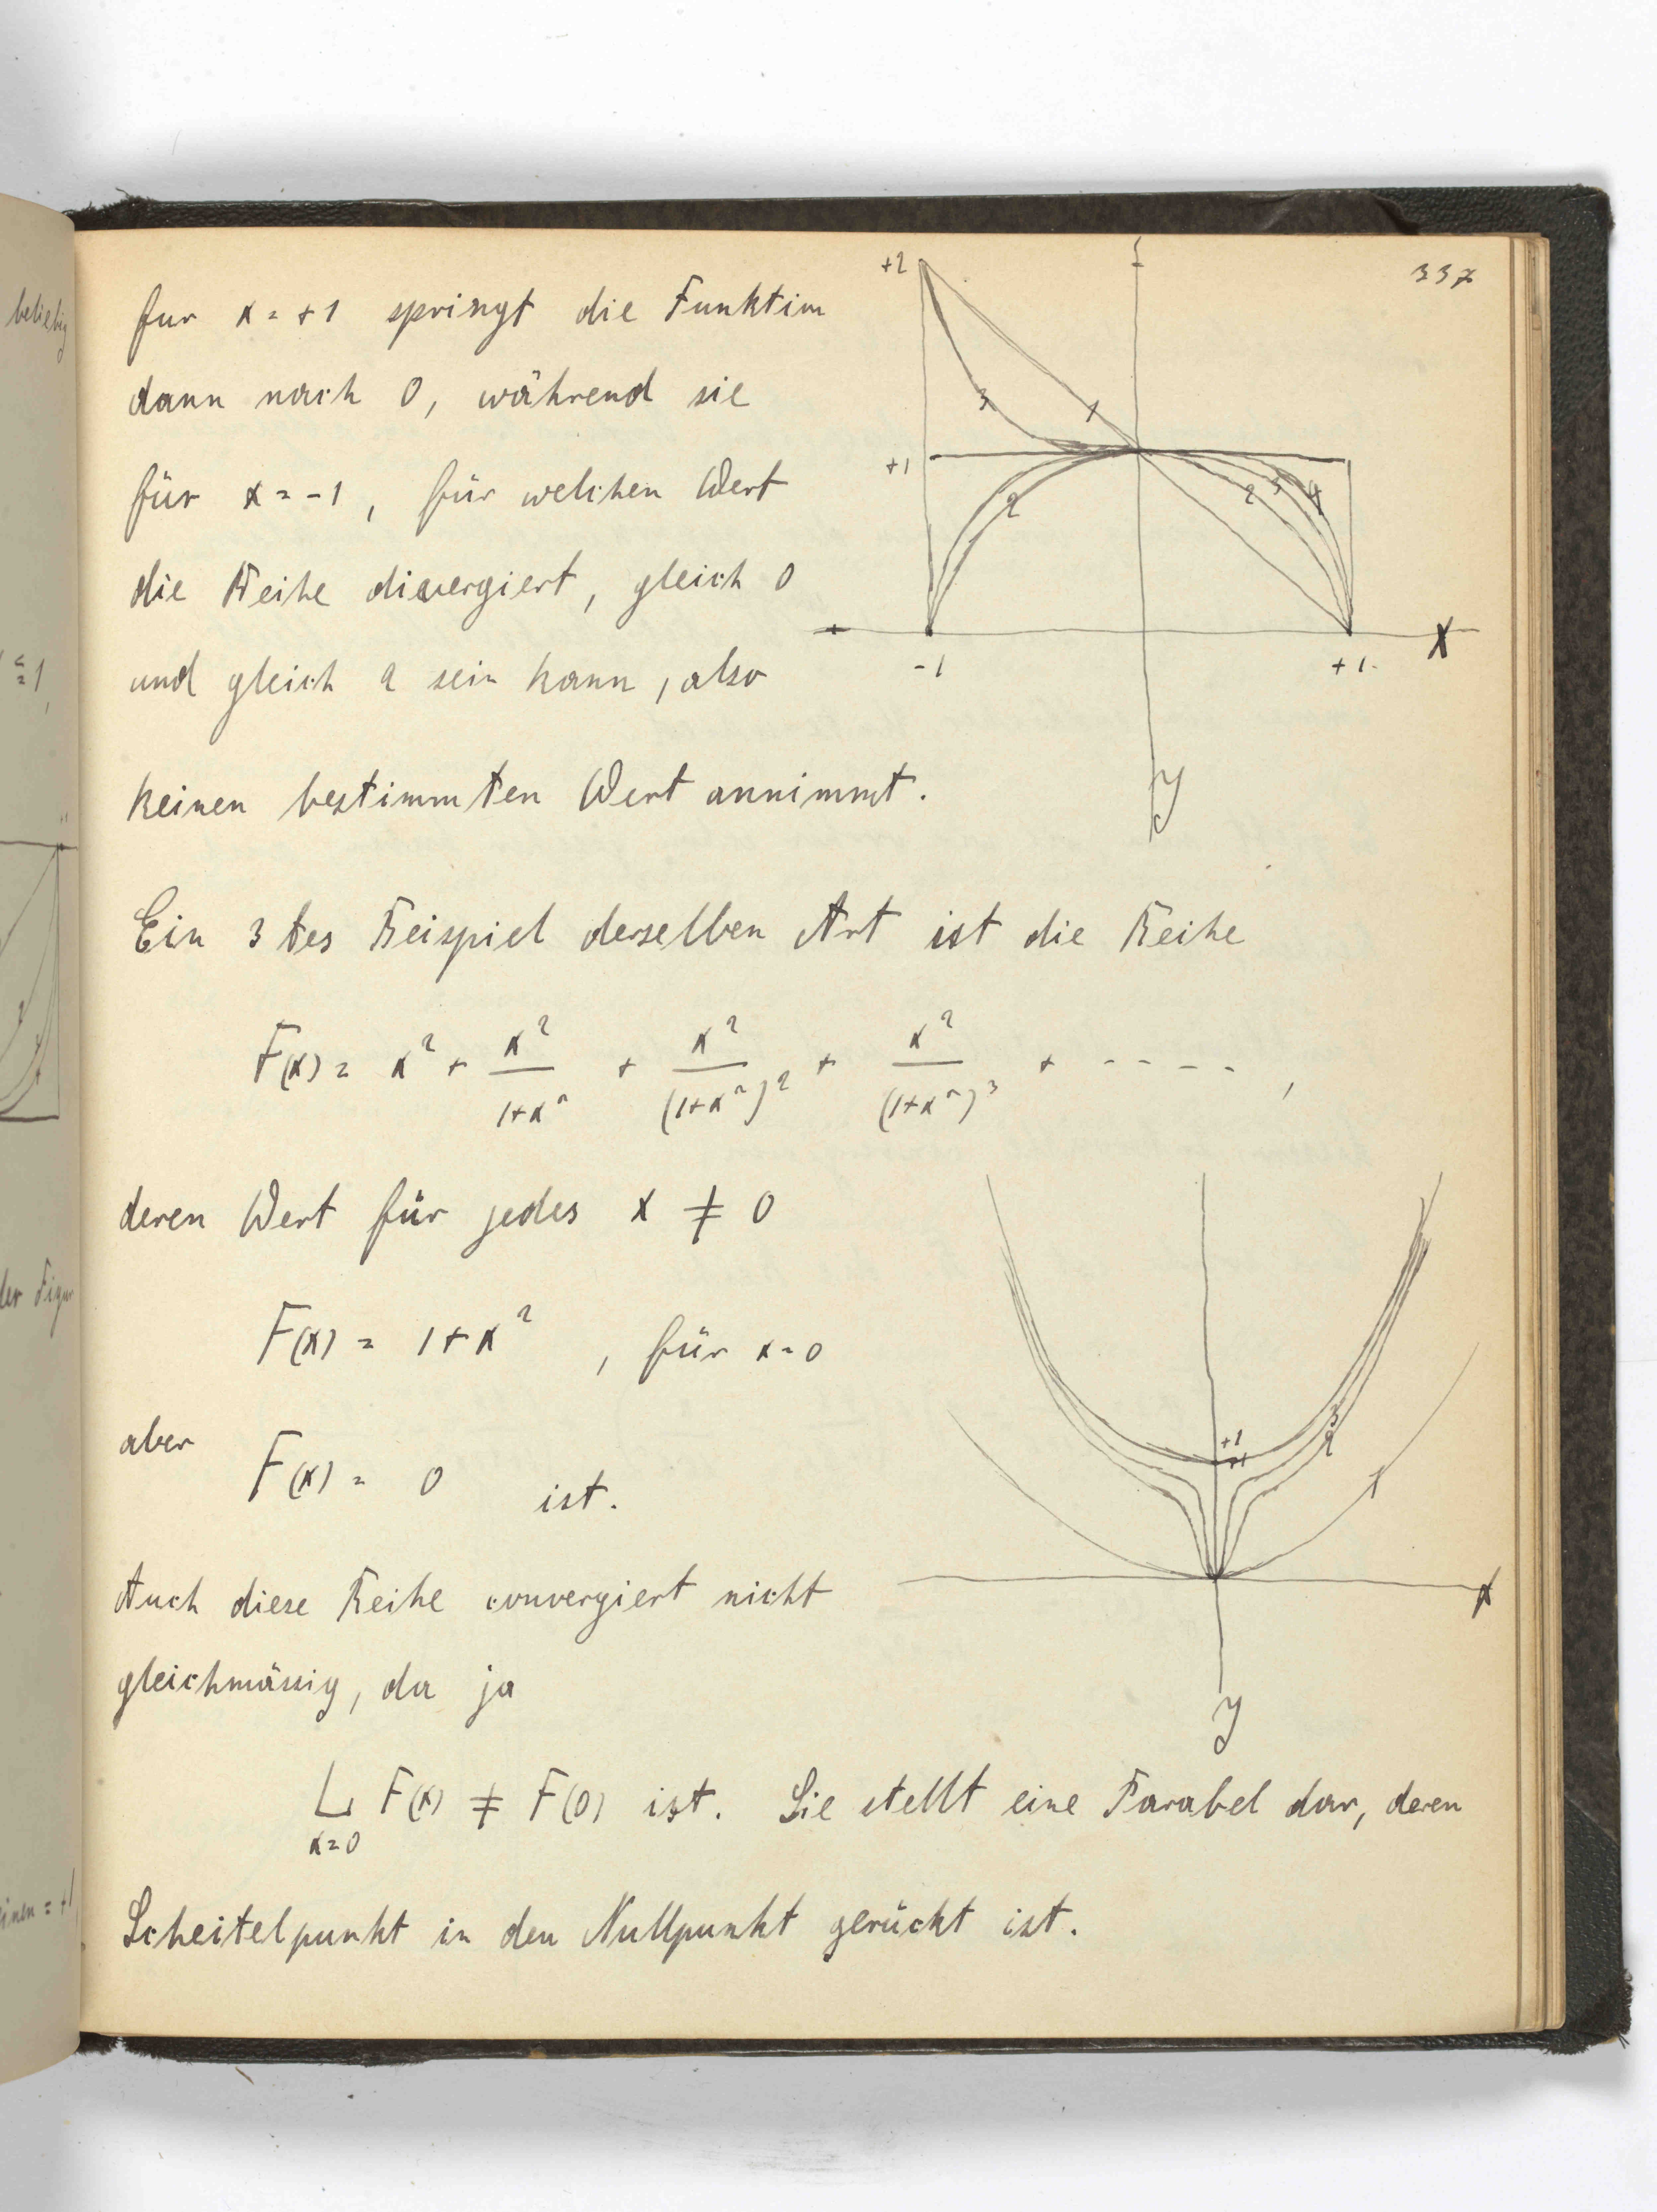 337
fur x = +1 springt die Funktion
dann nach 0, während sie
für x = -1, für welchen Wert
die Reihe divergiert, gleich 0
und gleich 2 sein kann, also
keinen bestimmten Wert annimmt.
+2
+1
-1
+1
x
y
1
3
2
2
3
4
Ein 3tes Beispiel derselben Art ist die Reihe
F(x) = x² + x²/(1+x²) + x²/(1+x²)² + x²/(1+x²)³ + - - - - - ,
deren Wert für jedes x ≠ 0
F(x) = 1+x² , für x=0
aber F(x) = 0 ist.
+1
+1
3
2
1
x
y
Auch diese Reihe convergiert nicht
gleichmässig, da ja
L F(x) ≠ F(0) ist. Sie stellt eine Parabel dar, deren
x=0
Scheitelpunkt in den Nullpunkt gerückt ist.
beliebig
≦ 1,
der Figur
einen = +1